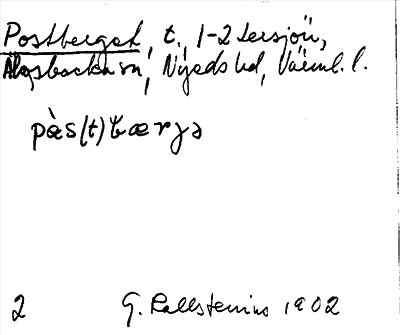 Postberget, t., 1-2 Lersjön,
Älgsbacka sn, Nyeds hd, Värml. l.
pàs(t)bærjə
2 G. Kallstenius 1902